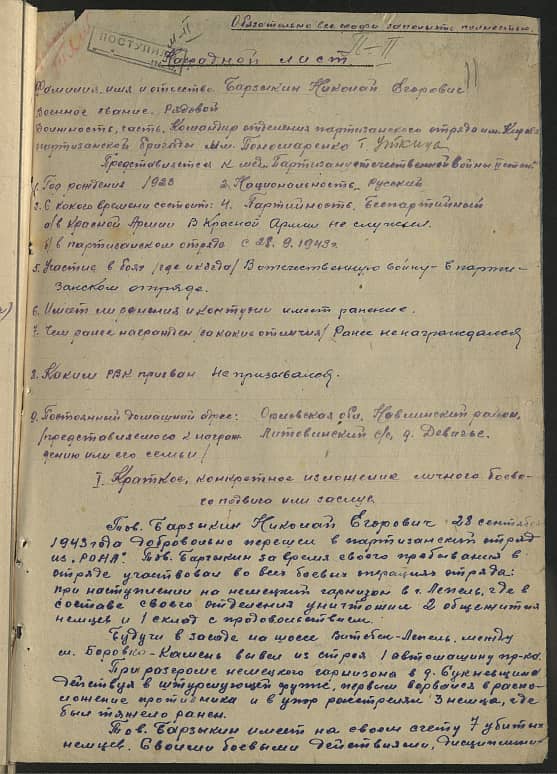 Обязательно все графы заполнять полностью.
ПОСТУПИЛ
П-II
Наградной лист
11
Фамилия, имя и отчество Барзыкин Николай Егорович
Военное звание. Рядовой
Должность, часть. Командир отделения партизанского отряда им. Кирова
партизанской бригады им. Пономаренко т. Уткина
Представляется к мед. Партизану отечественной войны II степени
1. Год рождения 1923 2. Национальность русский
3. С какого времени состоит: 4. Партийность. Беспартийный
а/ в Красной Армии В Красной Армии не служил.
б/ в партизанском отряде с 28.9.1943г.
5. Участие в боях /где и когда/ В отечественную войну - в парти-
занском отряде.
6. Имеет ли ранения и контузии имеет ранение.
7. Чем ранее награжден /за какие отличия/ Ранее не награждался
8. Каким РВК призван Не призывался.
9. Постоянный домашний адрес: Орловская обл, Навлинский район,
/представляемого к награж Литовинский с/с, д. Девичье.
дению или его семьи/
I. Краткое, конкретное изложение личного боево-
го подвига или заслуг
Тов. Барзыкин Николай Егорович 28 сентября
1943 года добровольно перешел в партизанский отряд
из "РОНА". Тов. Барзыкин за время своего пребывания в
отряде участвовал во всех боевых операциях отряда:
при наступлении на немецкий гарнизон в г. Лепель, где в
составе своего отделения уничтожил 2 общежития
немцев и 1 склад с продовольствием.
Будучи в засаде на шоссе Витебск-Лепель, между
м. Боровка-Камень вывел из строя 1 автомашину пр-ка.
При разгроме немецкого гарнизона в д. Сукневщина
действуя в штурмующей группе, первым ворвался в распо-
ложение противника и в упор расстрелял 3 немца, где
был тяжело ранен.
Тов. Барзыкин имеет на своем счету 7 убитых
немцев. Своими боевыми действиями,